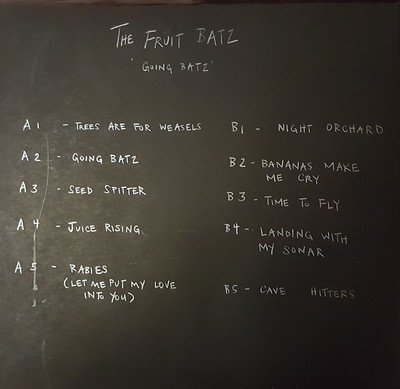 THE FRÜIT BATZ
'GOING BATZ'
A1 - TREES ARE FOR WEASELS
A2 - GOING BATZ
A3 - SEED SPITTER
A4 - JUICE RISING
A5 - RABIES
(LET ME PUT MY LOVE
INTO YOU)
B1 - NIGHT ORCHARD
B2 - BANANAS MAKE
ME CRY
B3 - TIME TO FLY
B4 - LANDING WITH
MY SONAR
B5 - CAVE HITTERS